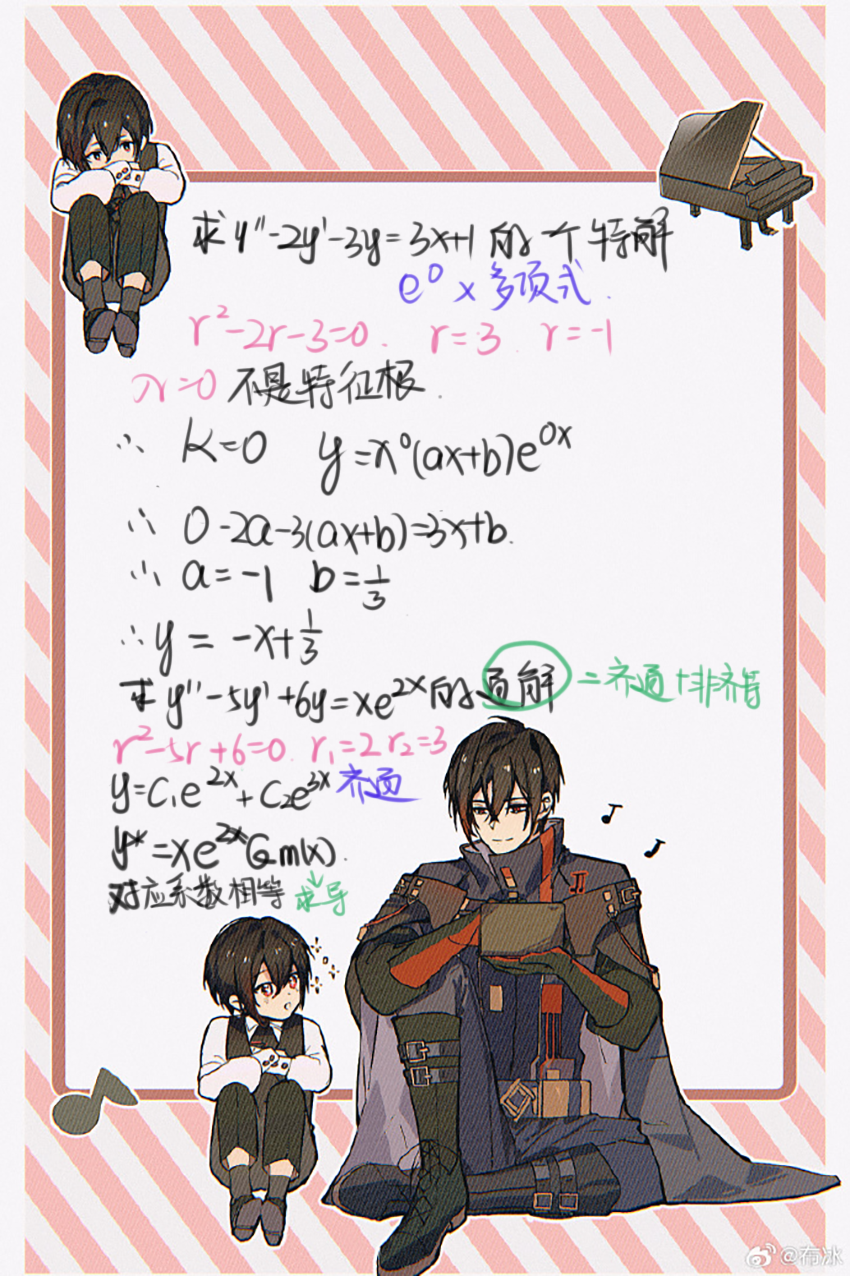 求 y''-2y'-3y=3x+1 的一个特解
e⁰ × 多项式.
r²-2r-3=0. r=3 r=-1
λ=0 不是特征根.
∴ K=0 y=x⁰(ax+b)e⁰ˣ
∴ 0-2a-3(ax+b)=3x+b.
∴ a=-1 b=1/3
∴ y = -x+1/3
求 y''-5y'+6y=xe²ˣ的通解 =齐通+非齐特
r²-5r+6=0. r₁=2 r₂=3
y=C₁e²ˣ+C₂e³ˣ 齐通
y*=xe²ˣQm(x).
对应系数相等 求导
@布冰